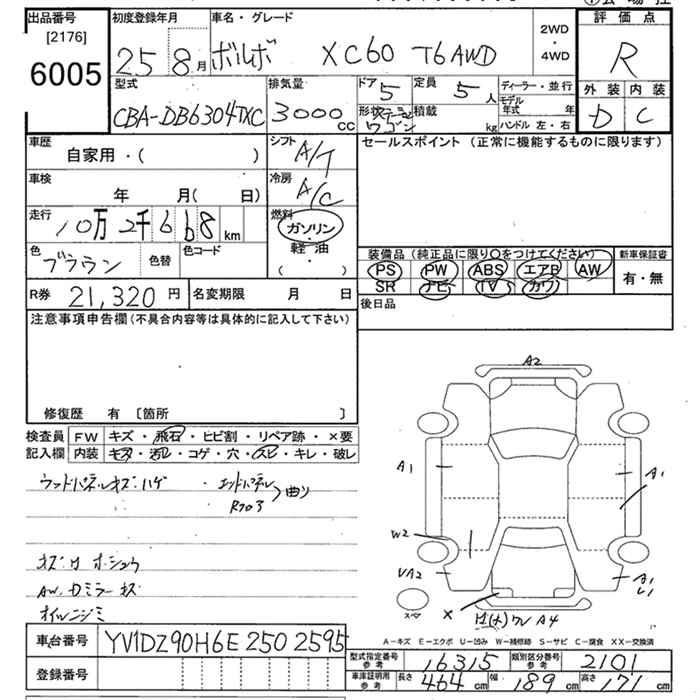 出品番号
[2176]
6005
初度登録年月
25 8月
車名・グレード
ボルボ XC60 T6AWD
2WD
・
4WD
評価点
R
外装 内装
D C
型式
CBA-DB6304TXC
排気量
3000 cc
ドア 5
形状 ステーション ワゴン
定員 5 人
積載 kg
ディーラー・並行
モデル年式 年
ハンドル 左・右
車歴
自家用・( )
シフト A/T
車検
年 月( 日)
冷房 A/C
走行
10万 2千 6 6 8 km
燃料
ガソリン
軽油
( ・ )
色 ブラウン
色替
色コード
R券 21,320 円
名変期限 月 日
セールスポイント (正常に機能するものに限ります)
装備品 (純正品に限り○をつけてください)
PS PW ABS エアB AW
SR ナビ TV カワ
新車保証書
有・無
後日品
注意事項申告欄(不具合内容等は具体的に記入して下さい)
修復歴 有 [箇所 ]
検査員 FW キズ・飛石・ヒビ割・リペア跡・×要
記入欄 内装 キズ・汚レ・コゲ・穴・スレ・キレ・破レ
ウッドパネルキズ・ハゲ
・エンドパネル
Rフロア
曲り
キズ・凹 ホシュウ
AW、ドミラーキズ
オイルニジミ
A2
A1
A1
W2
VA2
A1
X
A4
A-キズ E-エクボ U-凹み W-補修跡 S-サビ C-腐食 XX-交換済
車台番号 YV1DZ90H6E2502595
登録番号
型式指定番号 参考 16315
類別区分番号 参考 2101
車庫証明用 参考 長さ 464 cm 幅 189 cm 高さ 171 cm